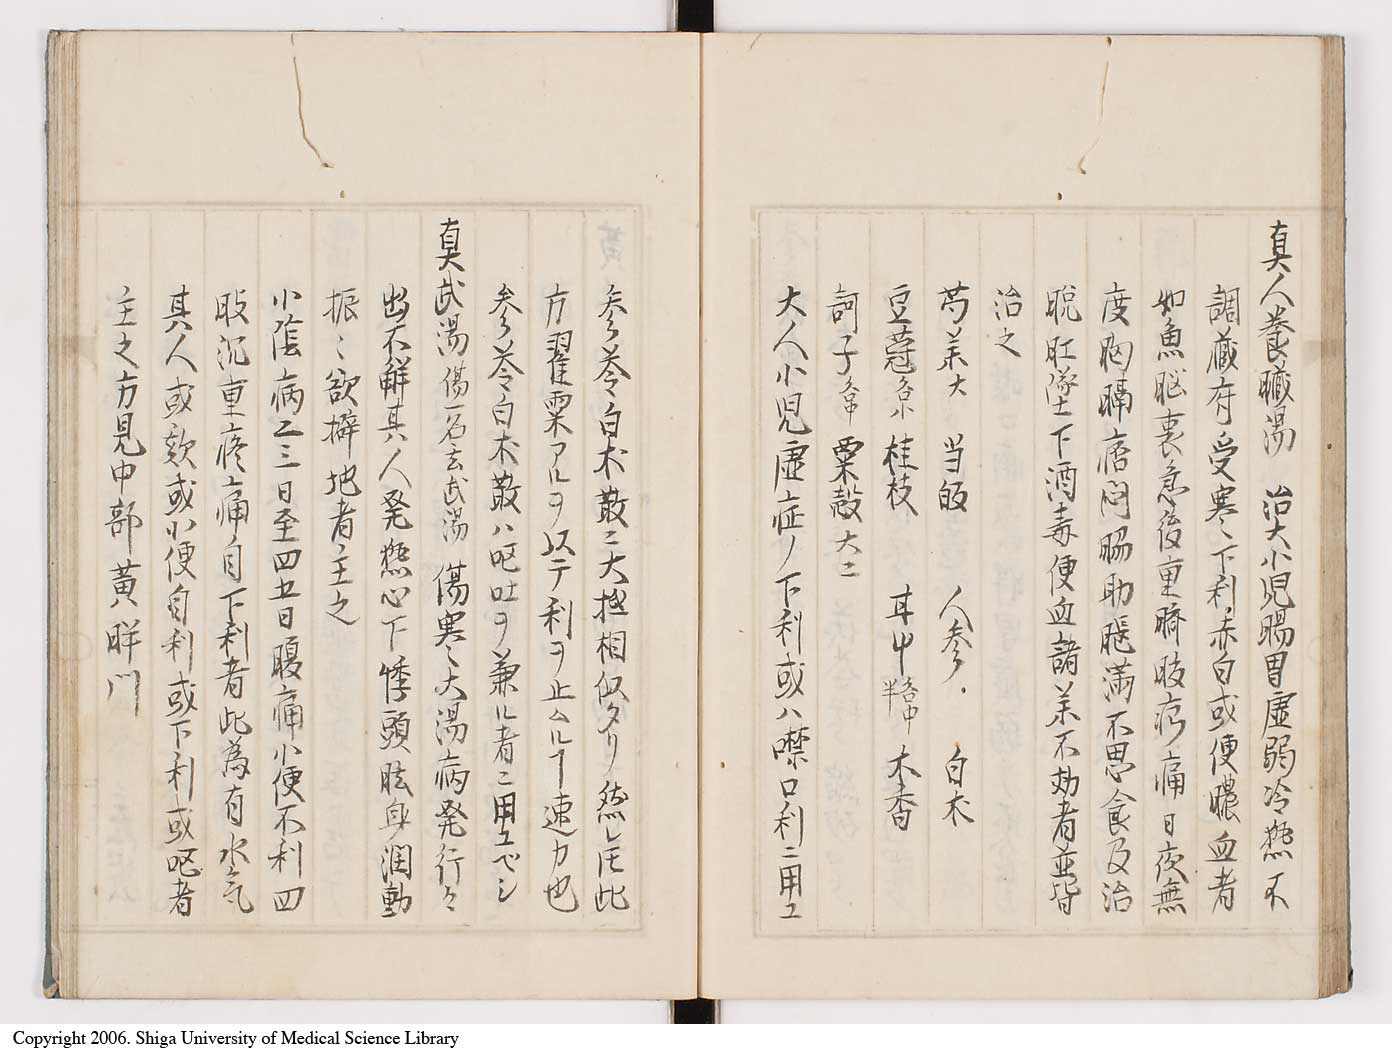 真人養臓湯 治大小児腸胃虚弱冷熱不
調蔵府受寒下利赤白或便膿血者
如魚脳裏急後重臍腹㽲痛日夜無
度胸膈痞悶脇肋脹満不思食及治
脱肛墜下酒毒便血諸薬不効者並皆
治之
芍薬大 当皈 人参 白朮
豆蔲各小 桂枝 甘草半 木香
訶子各中 粟殻大二
大人小児虚症ノ下利或ハ噤口利ニ用エ
参苓白朮散ニ大抵相似タリ然レ𪜈此
方罌粟アルヲ以テ利ヲ止ムルヿ速カ也
参苓白朮散ハ呕吐ヲ兼ル者ニ用エベシ
真武湯傷一名玄武湯 傷寒大湯病発行々
出不解其人発熱心下悸頭眩身潤動
振々欲擗地者主之
小陰病二三日至四五日腹痛小便不利四
肢沉重疼痛自下利者此為有水気
其人或欬或小便自利或下利或呕者
主之方見中部黄胖門
Copyright 2006. Shiga University of Medical Science Library